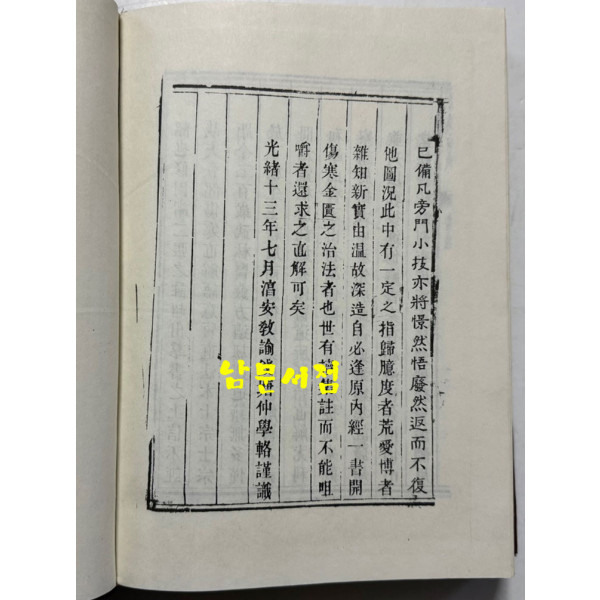 已備凡旁門小技亦將憬然悟廢然返而不復
他圖況此中有一定之指歸臆度者荒愛博者
雜知新實由溫故深造自必逢原內經一書開
傷寒金匱之治法者也世有 集註而不能咀
嚼者還求之直解可矣
光緒十三年七月淯安教諭 仲學輅謹識
남문서점